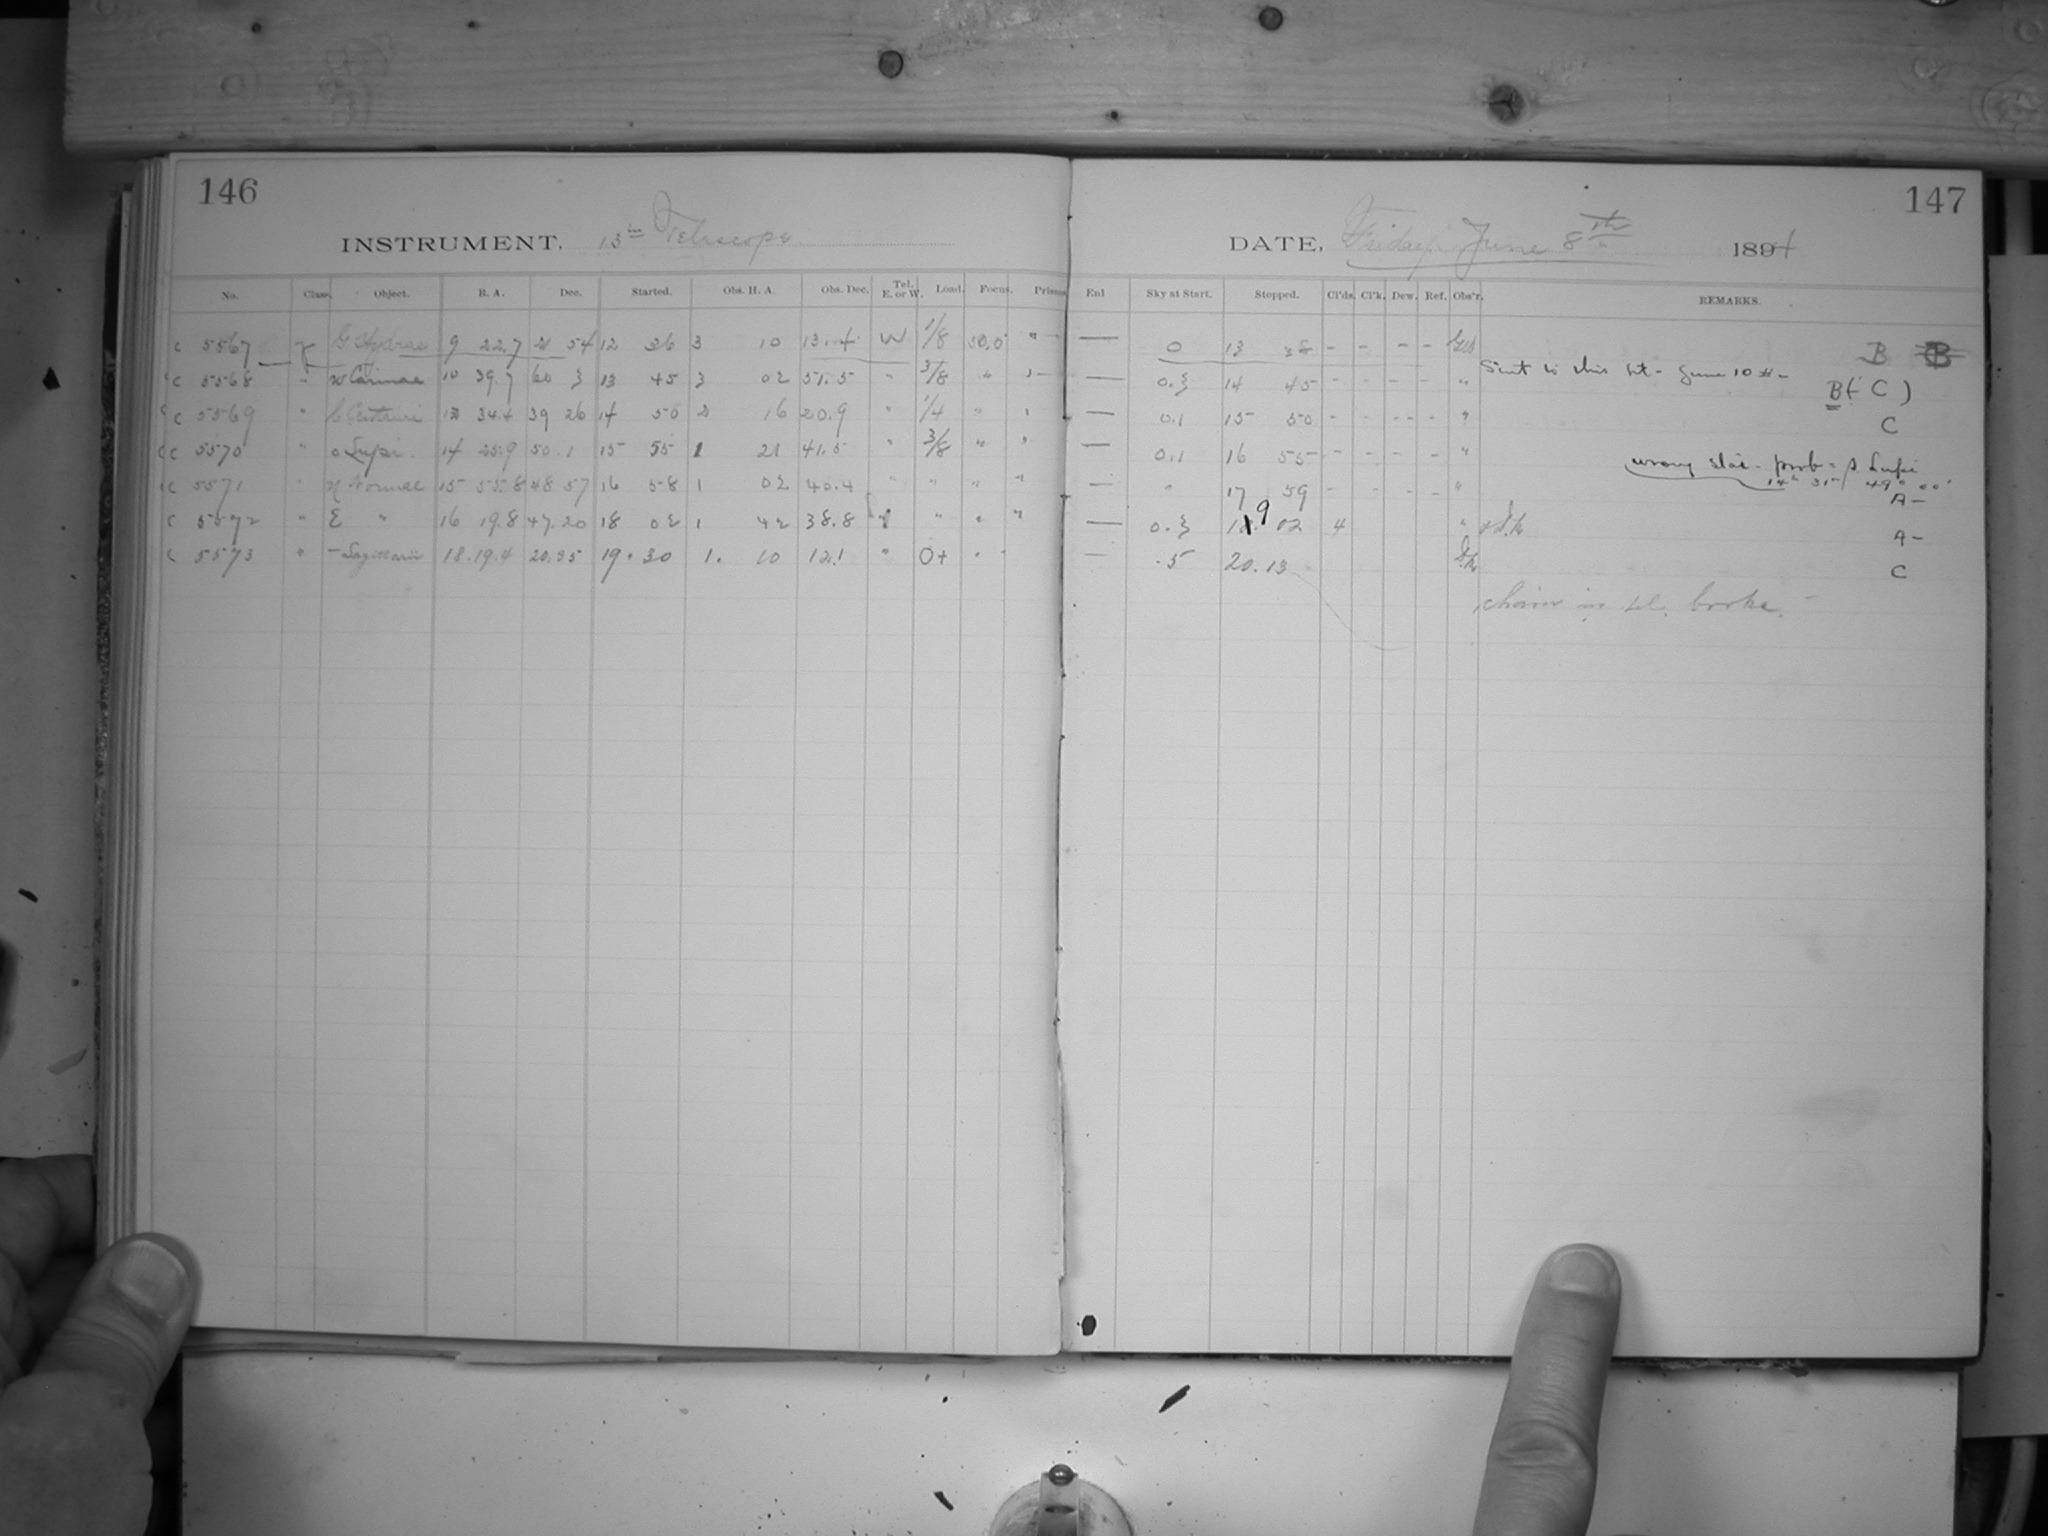 146
147
INSTRUMENT, 13 in Telescope
DATE, Friday June 8th 1894
No. Class. Object. R. A. Dec. Started. Obs. H. A. Obs. Dec. Tel. E. or W. Load. Focus. Prisms Enl Sky at Start. Stopped. Cl'ds. Cl'k. Dew. Ref. Obs'r. REMARKS.
c 5567 G Hydrae 9 22.7 21 54 12 36 3 10 13.4 W 1/8 50.0 " — 0 13 38 - - - - B
Sent to this st- June 10 th -
c 5568 " w Carinae 10 39.7 60 3 13 45 3 02 51.5 " 3/8 " " — 0.3 14 45 - - - - " B (C)
c 5569 " 34.4 39 26 14 50 2 16 20.9 " 1/4 " " — 0.1 15 50 - - - - " C
c 5570 " o Lupi 14 25.9 50.1 15 55 1 21 41.5 " 3/8 " " — 0.1 16 55 - - - - " wrong star - prob = Lupi
14h 31m 49° 00'
c 5571 " η Normae 15 55.8 48 57 16 58 1 02 40.4 " " " " — " 17 59 - - - - " A-
c 5572 " ε " 16 19.8 47.20 18 02 1 42 38.8 " " " — 0.3 19 02 4 " A-
c 5573 " - Sagittarii 18.19.4 20.35 19.30 1. 10 12.1 " 0+ " " — .5 20.13 C
chain in tel. broke.